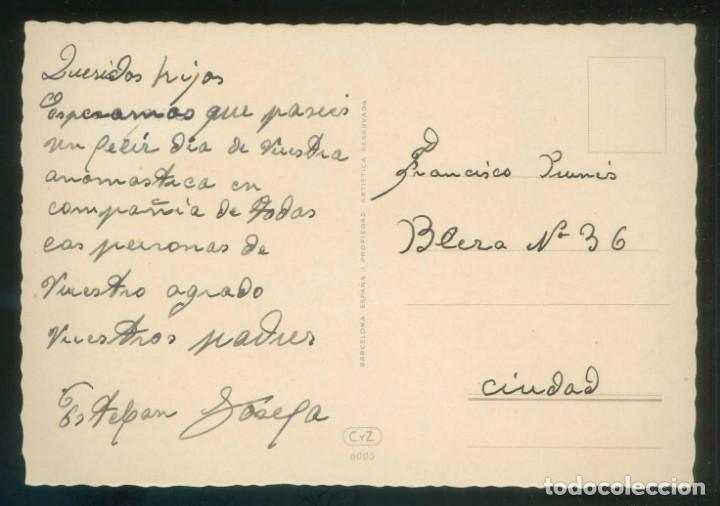 Queridos hijos
Esperamos que paseis
un feliz dia de Vuestra
anomastica en
compañia de todas
las personas de
Vuestro agrado
Vuestros padres
Esteban Josefa
BARCELONA ESPAÑA · PROPIEDAD ARTISTICA RESERVADA
C Y Z
6005
Francisco
Blera Nº 36
Ciudad
todocoleccion.net